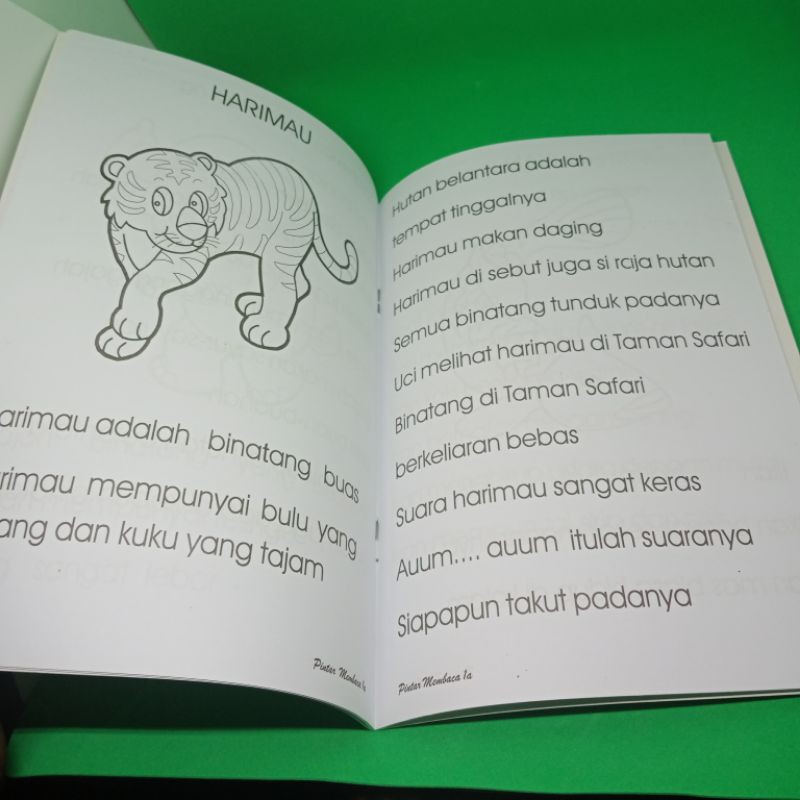 HARIMAU
arimau adalah binatang buas
rimau mempunyai bulu yang
ang dan kuku yang tajam
Pintar Membaca 1a
Hutan belantara adalah
tempat tinggalnya
Harimau makan daging
Harimau di sebut juga si raja hutan
Semua binatang tunduk padanya
Uci melihat harimau di Taman Safari
Binatang di Taman Safari
berkeliaran bebas
Suara harimau sangat keras
Auum.... auum itulah suaranya
Siapapun takut padanya
Pintar Membaca 1a